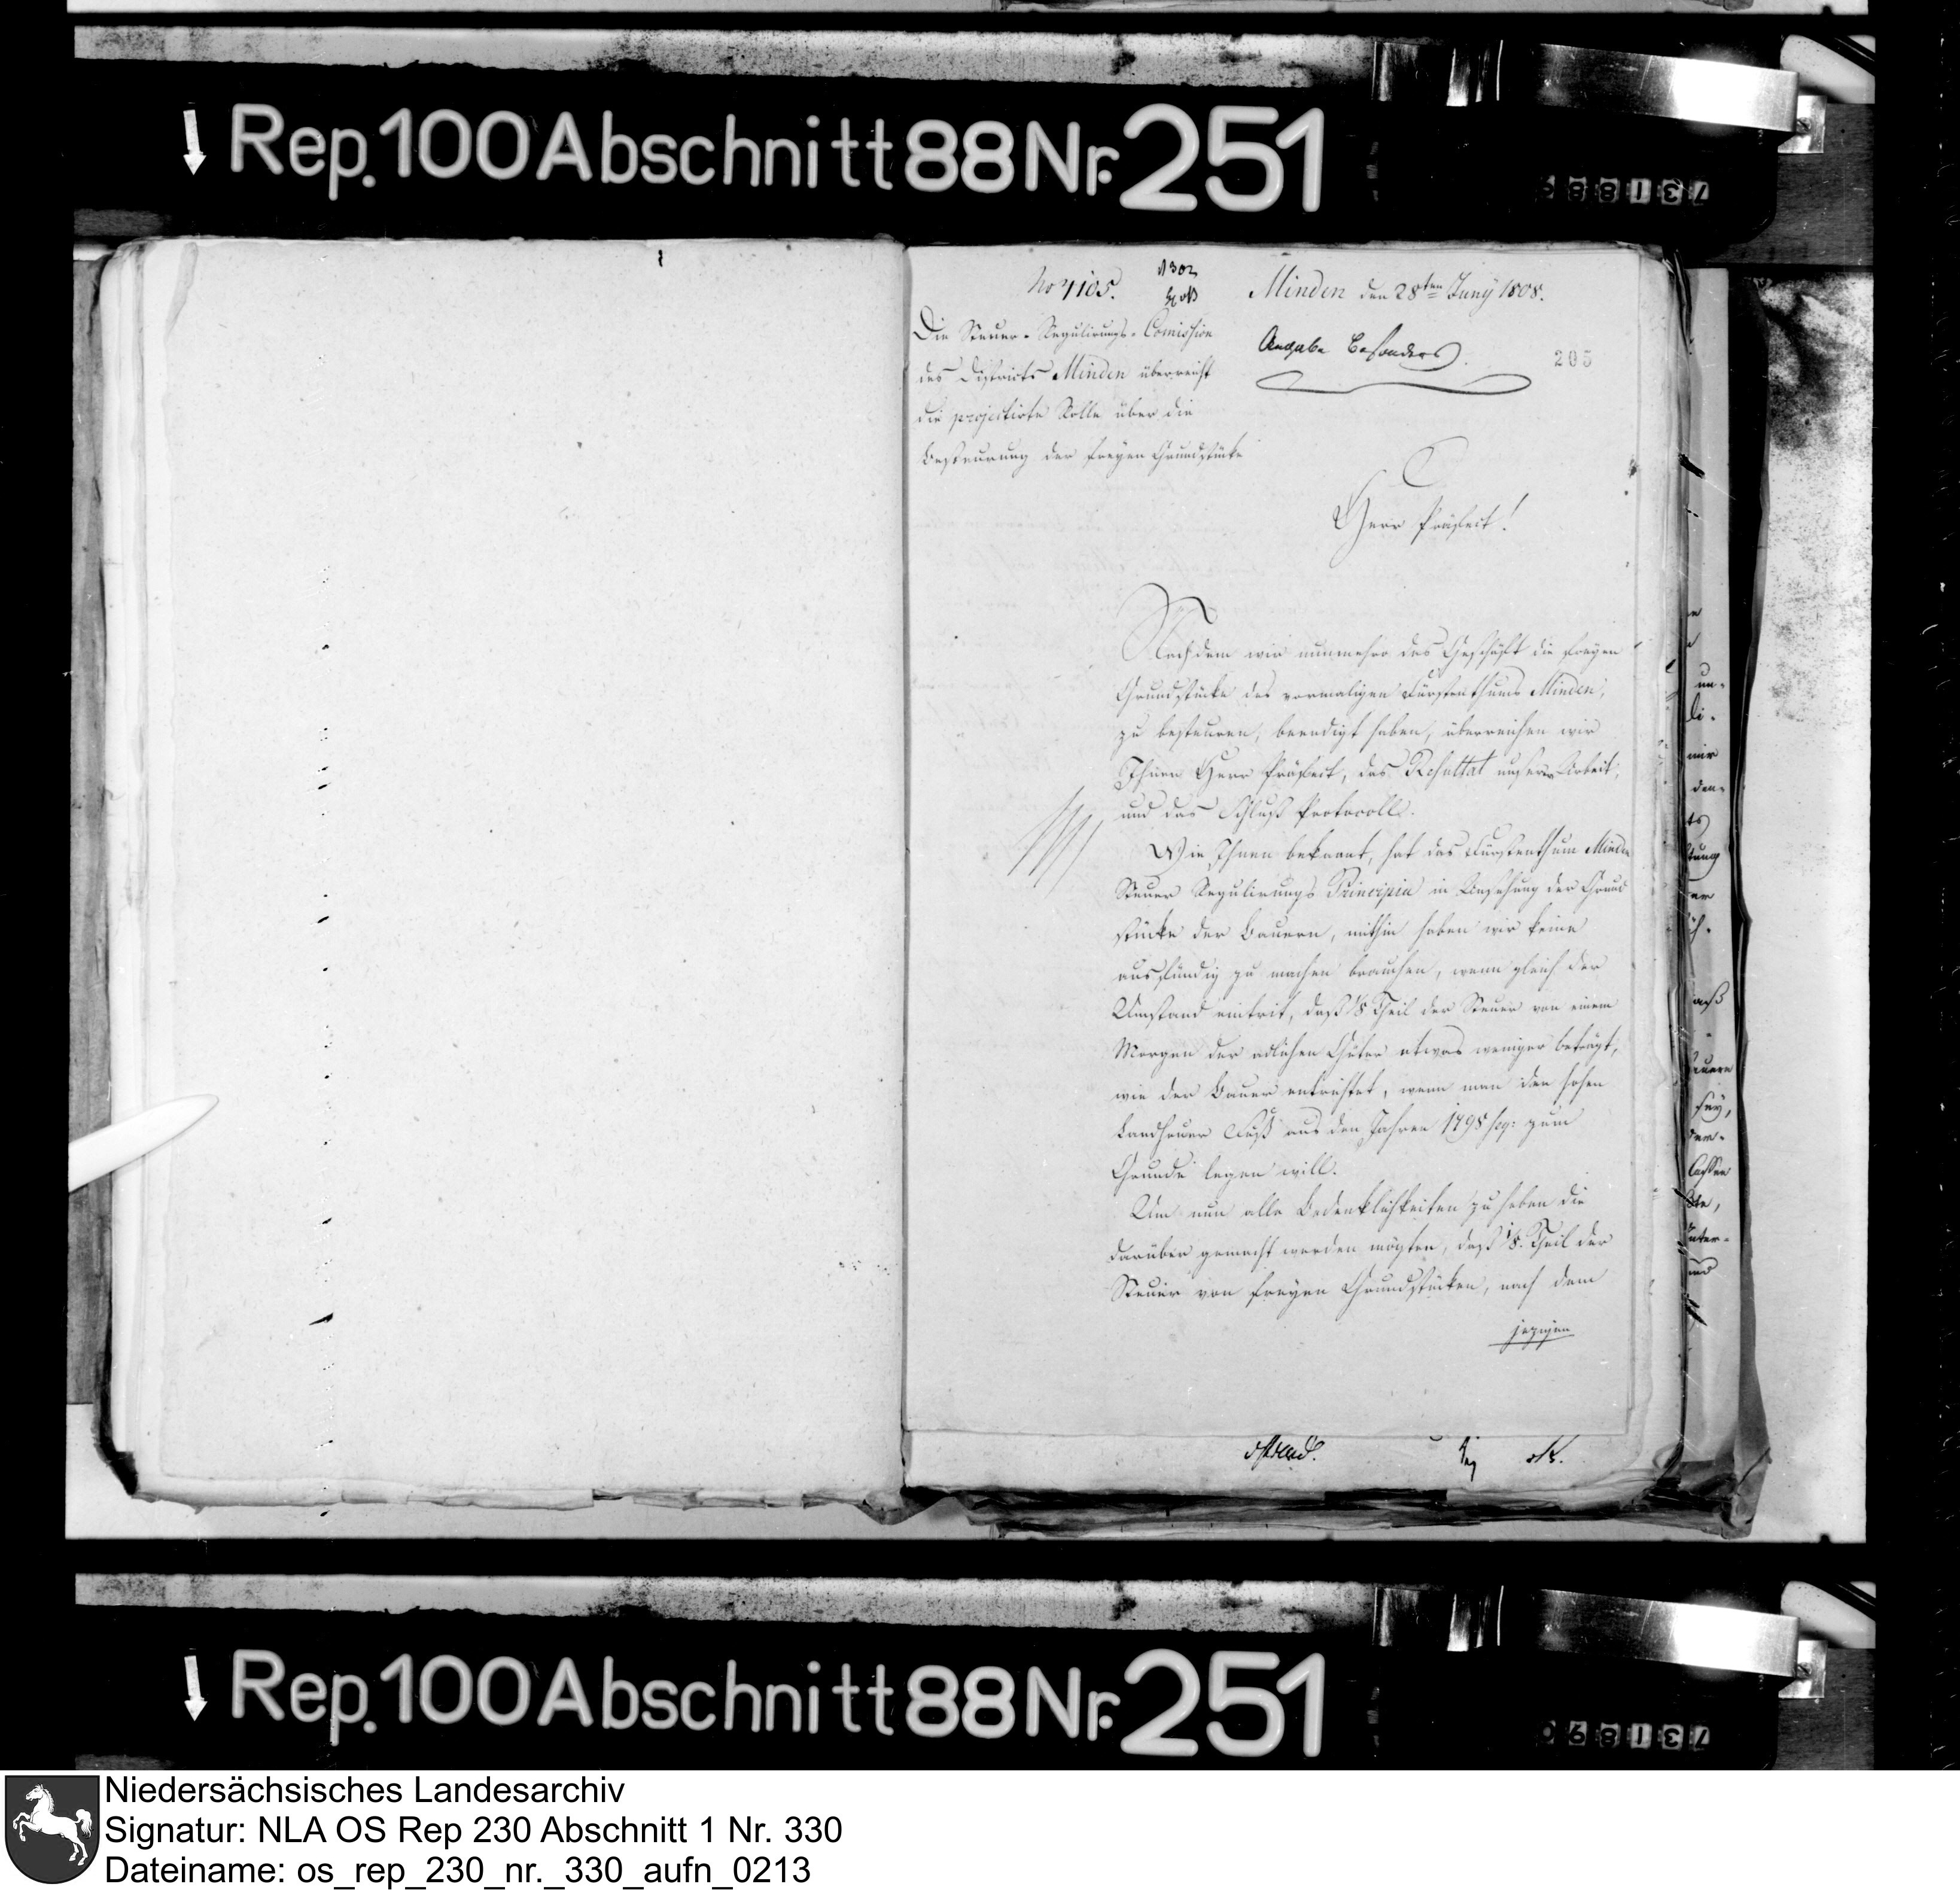 Rep. 100 Abschnitt 88 Nr. 251
No 4105.
Minden den 28ten Juny 1808.
Die Steuer-Regulirungs-Comission
des Districts Minden überreicht
die projectirte Rolle über die
Besteurung der freyen Grundstücke
Angabe besonders.
205
Herr Präfect!
Nachdem wir nunmehro das Geschäft die freyen
Grundstücke des vormaligen Fürstenthums Minden,
zu besteuren, beendigt haben, überreichen wir
Ihnen Herr Präfect, das Resultat unserer Arbeit,
und das Schluß Protocoll.
Wie Ihnen bekannt, hat das Fürstenthum Minden
Steuer Regulirungs Principia in Ansehung der Grund
stücke der Bauern, mithin haben wir keine
ausfündig zu machen brauchen, wenn gleich der
Umstand eintrit, daß 1/8 Theil der Steuer von einem
Morgen der adlichen Güter etwas weniger beträgt,
wie der Bauer entrichtet, wenn man den hohen
Landheuer Fuß aus den Jahren 1798 seq: zum
Grunde legen will.
Um nun alle Bedenklichkeiten zu heben die
darüber gemacht werden mögten, daß 1/8. Theil der
Steuer von freyen Grundstücken, nach dem
jezigen
Rep. 100 Abschnitt 88 Nr. 251
Niedersächsisches Landesarchiv
Signatur: NLA OS Rep 230 Abschnitt 1 Nr. 330
Dateiname: os_rep_230_nr._330_aufn_0213